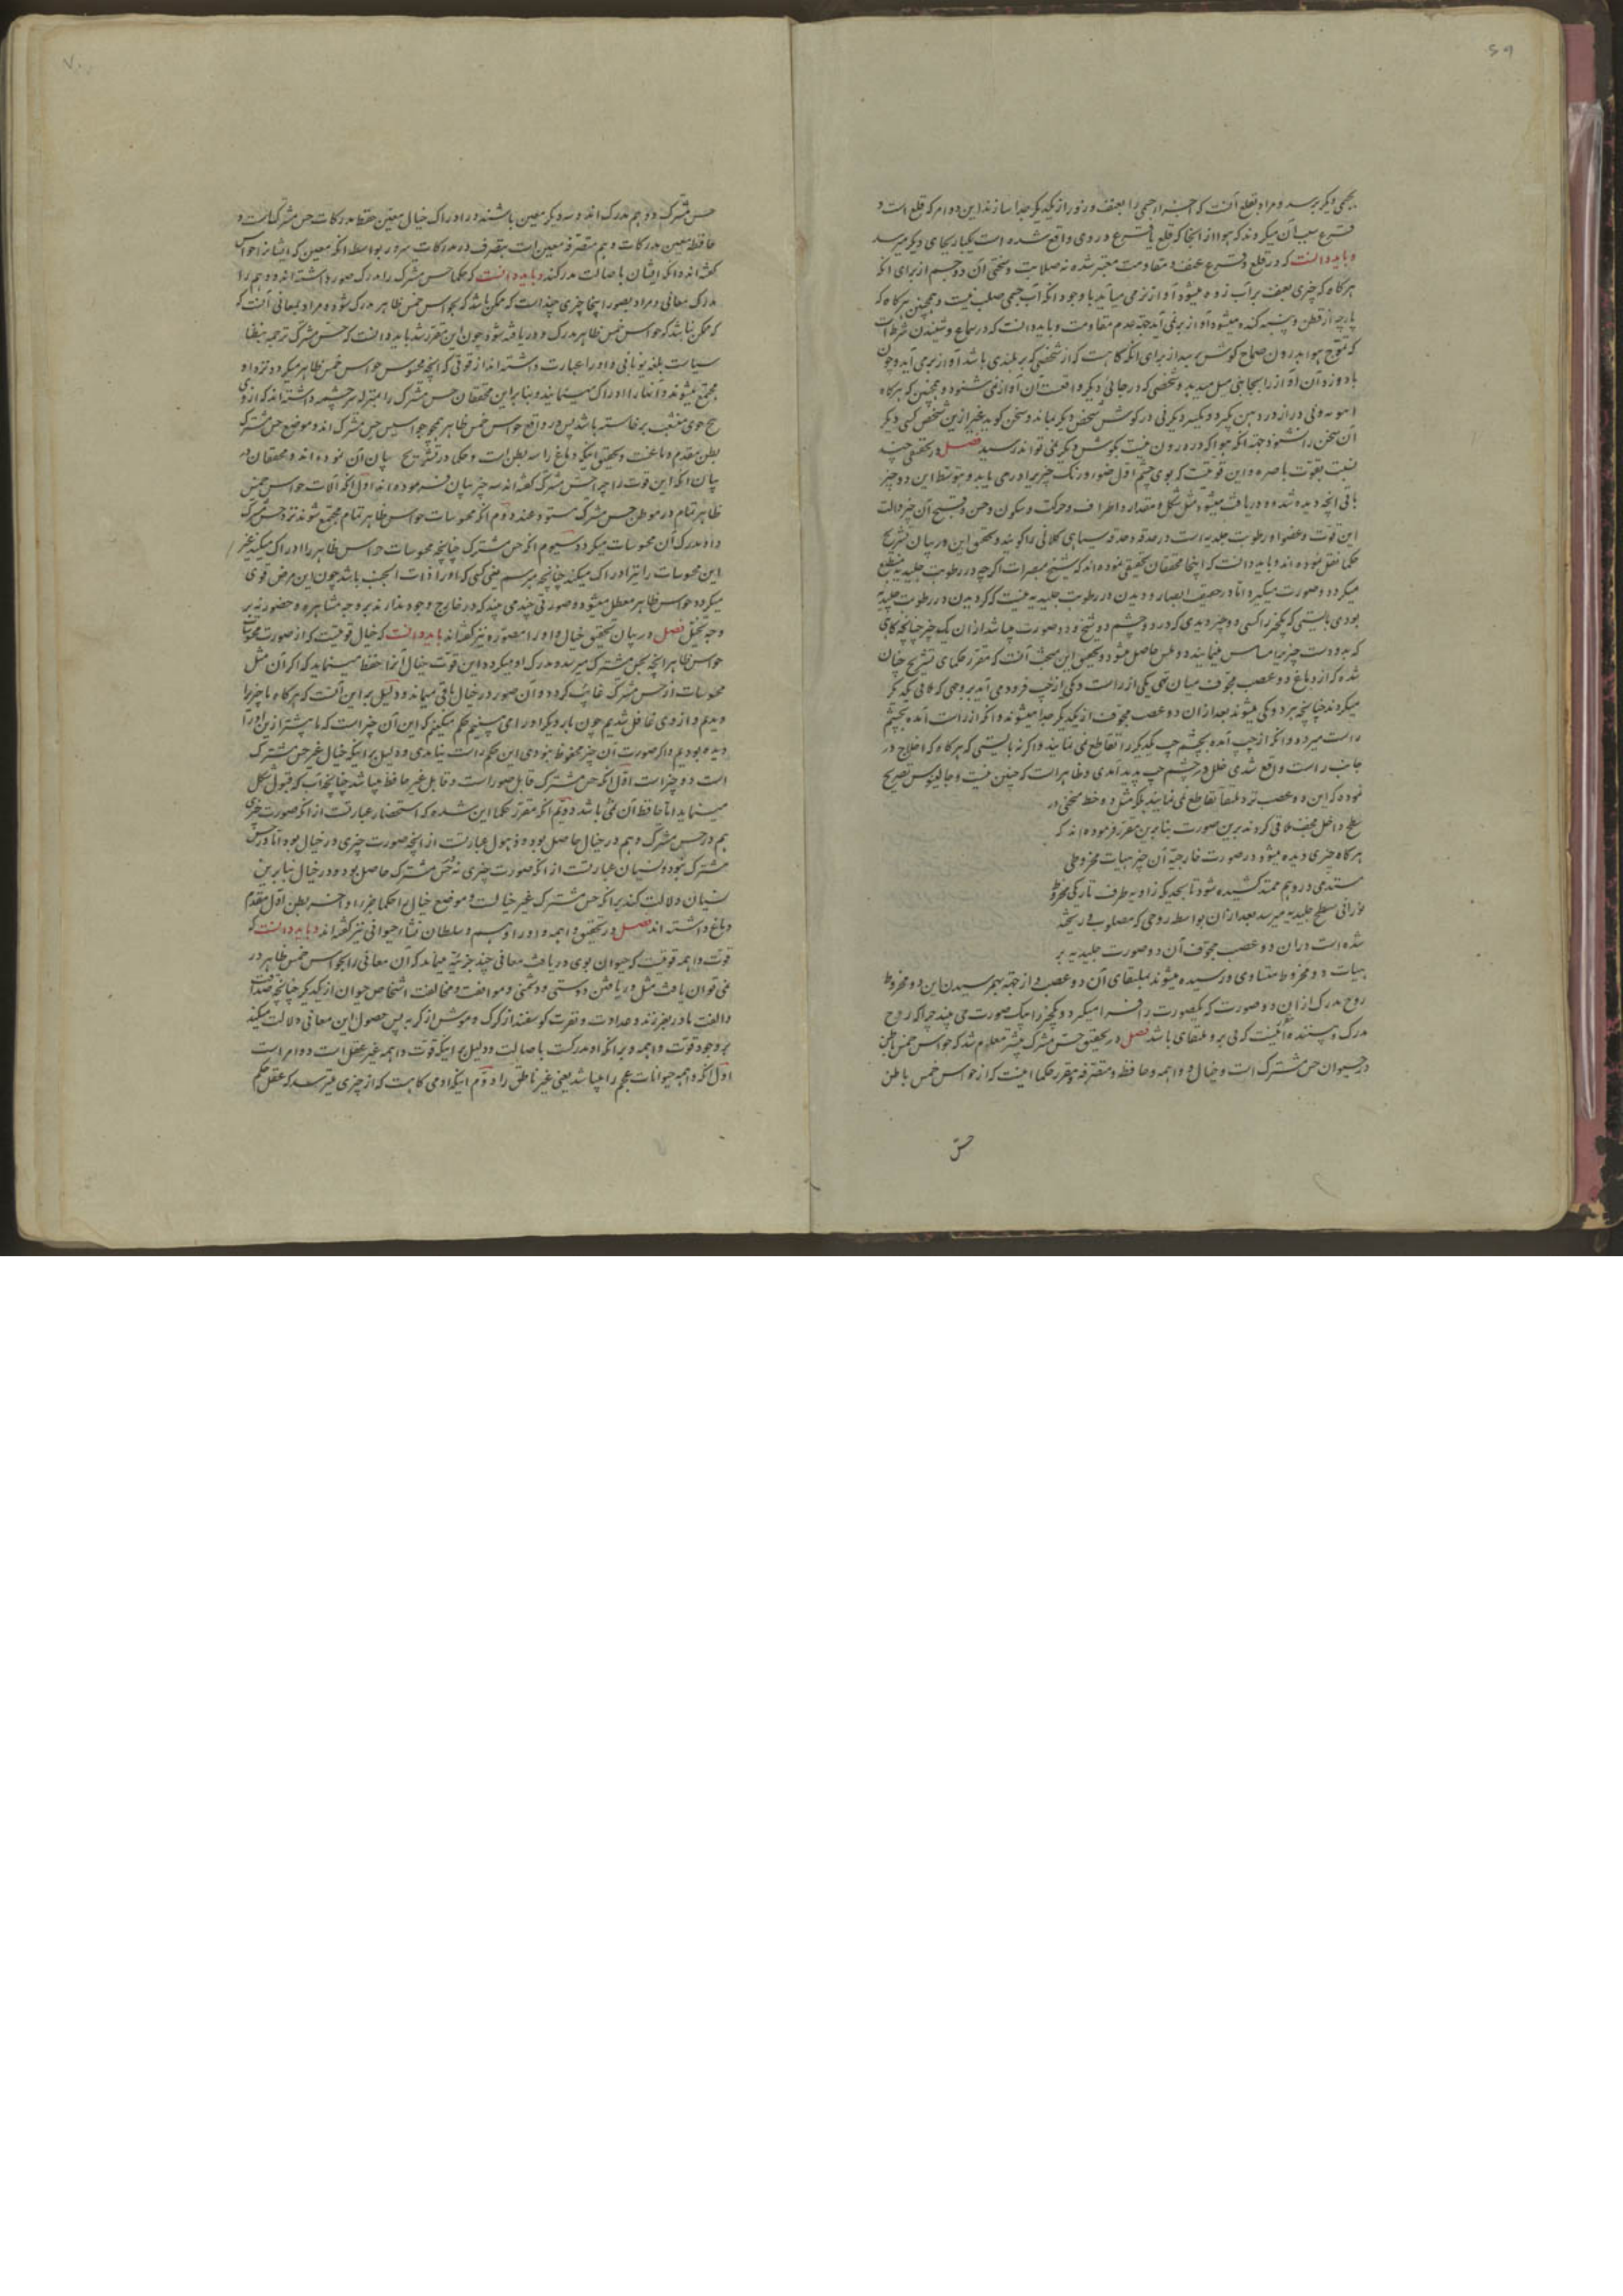 ۶۹
بجسمی دیگر برسد و مراد بقلع آنست که اجزاء جسمی را بعنف و زور از یکدیگر جدا سازند این دو امر که قلع است و
قرع سبب آن میگردند که هوا از آنجا که قلع یا قرع در وی واقع شده است یکبار بجای دیگر میرسد
و باید دانست که در قلع و قرع عنف و مقاومت معتبر شده نه صلابت و سختی آن دو جسم از برای آنکه
هرگاه که چیزی بعنف بر آب زده میشود آواز نرمی میآید با وجود آنکه آب جسمی صلب نیست و همچنین هرگاه که
پارچه از قطن و پنبه کنده میشود آواز بر نمی‌آید جهة عدم مقاومت و باید دانست که در سماع و شنیدن شرط است
که تموج هوا بدرون صماخ گوش برسد از برای آنکه گاهست که از شخصی که بر بلندی باشد آواز بر می‌آید و چون
باد وزد آن آواز را بجانبی میل میدهد و شخصی که در جانبی دیگر واقعست آن آواز نمی‌شنود و همچنین که هرگاه
دراز در دهن گیرد و یکسر دیگر نی در گوش شخص دیگر بماند و سخن گوید بغیر ازین شخص کسی دیگر
آن سخن را نشنود جهة آنکه هوا که در درون نیست بگوش دیگر نمی تواند رسید فصل در تحقیقی چند
نسبت بقوت باصره و این قوتیست که بوی چشم اول ضوء و رنگ چیز را در می یابد و بتوسط این دو چیز
باقی آنچه دیده شده دریافت میشود مثل شکل و مقدار و اطراف و حرکت و سکون و حسن و قبح آن چیز و آلت
این قوت و عضو او رطوبت جلیدیه است در حدقه و حدقه سیاهی کلانی را گویند و تحقیق این در بیان تشریح
حکما نقل نموده اند و باید دانست که اینجا محققان تحقیقی نموده اند که شبح مبصرات اگرچه در رطوبت جلیدیه منطبع
میگردد و صورت میگیرد اما در حقیقت ابصار و دیدن در رطوبت جلیدیه نیست که گر دیدن در رطوبت جلیدیه
بودی بایستی که یکچیز را کسی دو چیز دیدی که در دو چشم دو شبح و دو صورت میباشد از آن یک چیز چنانچه گاهی
که بدو دست چیزی را مساس مینمایند دو لمس حاصل میشود و تحقیق این مبحث آنست که مقرر حکمای تشریح چنان
شده که از دماغ دو عصب مجوف میان تهی یکی از راست و یکی از چپ فرود می آید بر وجهی که ملاقی یکدیگر
میگردند چنانچه هر دو یکی میشوند بعد از آن دو عصب مجوف از یکدیگر جدا میشوند و آنکه از راست آمده بچشم
راست میرود و آنکه از چپ آمده بچشم چپ یکدیگر را تقاطع نمی نمایند و اگر نه بایستی که هرگاه که اختلاج در
جانب راست واقع شدی خلل در چشم چپ پدید آمدی و ظاهر است که چنین نیست و جالینوس تصریح
نموده که این دو عصب نزد ملتقا تقاطع نمی نمایند بلکه مثل دو خط منحنی در
سطح داخل محدب ملاقی گردند برین صورت بنابرین مقرر فرموده اند که
هرگاه چیزی دیده میشود در صورت خارجیه آن چیز بهیات مخروطی
مستدیر در وهم ممتد کشیده شود تا بحدیکه زاویه طرف تاریکی مخروط
نورانی سطح جلیدیه میرسد بعد از آن بواسطه روحی که مصبوب و ریخته
شده است در آن دو عصب مجوف آن دو صورت جلیدیه بر
بهیات دو مخروط متساوی و رسیده میشوند بملتقای آن دو عصب و از جهة بهم رسیدن این دو مخروط
روح مدرک از این دو صورت که یکصورت را فرا میگرد و یکچیز را یک صورت می بیند چرا که روح
مدرک و بیننده آنست که نی بر و ملتقای باشد فصل در تحقیق حس مشترک پیشتر معلوم شد که حواس خمس باطن
در حیوان حس مشترک است و خیال و واهمه و حافظه و متصرفه و مقرر حکما اینست که از حواس خمس باطن
حس
۷۰
حس مشترک و وهم مدرک اند و سه دیگر معین باشند در ادراک خیال معین حفظ مدرکات حس مشترک است و
حافظه معین مدرکات وهم متصرفه معین است بتصرف در مدرکات هر دو بواسطه آنکه معین که ایشانرا حواس
گفته اند نه آنکه ایشان باصالت مدرکند و باید دانست که حکما حس مشترک را مدرک صور داشته اند و وهم را
مدرک معانی و مراد بصور اینجا چیزی چند است که ممکن باشد که بحواس خمس ظاهر مدرک شود و مراد بمعانی آنست که
که ممکن نباشد که حواس خمس ظاهر مدرک و دریافته شود چون این مقرر شد باید دانست که حس مشترک ترجمه بنطا
سیاست بلغه یونانی و او را عبارت داشته اند از قوتی که آنچه محسوس حواس خمس ظاهر میگردد نزد او
مجتمع میشوند و آنها را ادراک مینمایند و بنابراین محققان حس مشترک را بمنزله سرچشمه داشته اند که از وی
پنج جوی منشعب برخاسته باشد پس در واقع حواس خمس ظاهر همچو جواسیس حس مشترک اند و موضع حس مشترک
بطن مقدم دماغست و تحقیق اینکه دماغ را سه بطن است و حکما در تشریح بیان آن نموده اند و محققان در
بیان آنکه این قوت را چرا حس مشترک گفته اند سه چیز بیان فرموده اند اول آنکه آلات حواس خمس
ظاهر تمام در موطن حس مشترک مستودعند دوم آنکه محسوسات حواس ظاهر تمام مجتمع شوند نزد حس مشترک
و او مدرک آن محسوسات میگردد سیوم آنکه حس مشترک چنانچه محسوسات حواس ظاهر را ادراک میکند غیر
این محسوسات را نیز ادراک میکند چنانچه مبرسم یعنی کسی که او را ذات الجنب باشد چون این مرض قوی
میگردد حواس ظاهر معطل میشود و صورتی چند می بیند که در خارج وجود ندارند بر وجه مشاهده و حضور نه بر
وجه تخیل فصل در بیان تحقیق خیال و او را مصوره نیز گفته اند باید دانست که خیال قوتیست که از صورت محسوسات
حواس ظاهر آنچه بحس مشترک میرسد و مدرک او میگردد این قوت خیال آنرا حفظ مینماید که اگر آن مثل
محسوسات از حس مشترک غائب گردد و آن صور در خیال باقی میماند و دلیل بر این آنست که هرگاه ما چیزی
دیدیم و از وی غافل شدیم چون بار دیگر او را می بینیم حکم میکنیم که این آن چیز است که ما پیشتر ازین او را
دیده بودیم و اگر صورت آن چیز محفوظ نبودی این حکم راست نیامدی و دلیل بر اینکه خیال غیر حس مشترک
است دو چیز است اول آنکه حس مشترک قابل صور است و قابل غیر حافظ میباشد چنانچه آب که قبول شکل
مینماید اما حافظ آن نمی باشد دویم آنکه مقرر حکما این شده که استحضار عبارتست از آنکه صورت چیزی
هم در حس مشترک و هم در خیال حاصل بود و ذهول عبارتست از آنچه صورت چیزی در خیال بود اما در حس
مشترک نبود و نسیان عبارتست از آنکه صورت چیزی نه در حس مشترک حاصل بود و نه در خیال بنابرین
نسیان دلالت کند بر آنکه حس مشترک غیر خیالست و موضع خیال را حکما جزء آخر بطن اول مقدم
دماغ داشته اند فصل در تحقیق واهمه و او را وهم و سلطان نشاء حیوانی نیز گفته اند و باید دانست که
قوت واهمه قوتیست که حیوان بوی دریافت معانی چند جزئیه مینماید که آن معانی را بحواس خمس ظاهر در
نمی توان یافت مثل دریافتن دوستی و دشمنی و موافقت و مخالفت اشخاص حیوان از یکدیگر چنانچه صداقت
و الفت مادر بفرزند و عداوت و نفرت گوسفند از گرگ و موش از گربه پس حصول این معانی دلالت میکند
بر وجود قوت واهمه و بر آنکه او مدرکست باصالت و دلیل بر اینکه قوت واهمه غیر عقل است دو امر است
اول آنکه واهمه حیوانات عجم را میباشد یعنی غیر ناطق را و دوم اینکه آدمی گاهست که از چیزی میترسد که عقل حکم